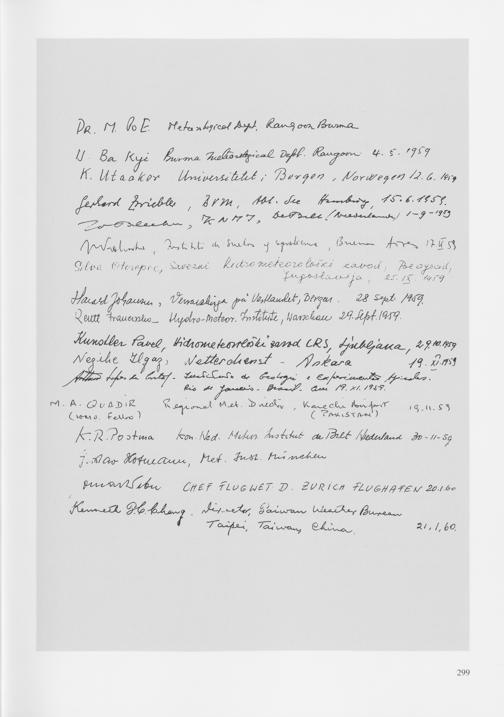 DR. M. PO E. Meteorological Dept. Rangoon Burma
U Ba Kyi Burma Meteorological Dept. Rangoon 4.5.1959
K. Utaaker Universitetet i Bergen, Norwegen 12.6.1959
Gerhard , Hamburg, 15.6.1959.
, K N M I, De Bilt (Niederlande) 1-9-1959
, y , Buenos Aires, 17 59
Silva , Savezni hidrometeorološki zavod, Beograd,
Jugoslavija, 25.IX.1959.
Harald Johansen, Vervarslinga på Vestlandet, Bergen. 28 Sept 1959.
Hydro-Meteor. Institute, Warschau 29.Sept.1959.
Kunstler Pavel, Hidrometeorološki zavod LRS, Ljubljana, 29.10.1959
Nezihe Ilgaz, Wetterdienst - Ankara 19. 1959
de e Agricolas.
Rio de Janeiro. Brasil. 19.XI.1959.
M. A. QUADIR Regional Met. Director, Karachi Airport 19.11.59
(W.M.O. Fellow) (PAKISTAN)
K.R. Postma Kon. Ned. Meteor. Instituut de Bilt Nederland 30-11-59
Hofmann, Met. Inst. München
CHEF FLUGWET D. ZÜRICH FLUGHAFEN 20.1.60
Kenneth Chang. Director, Taiwan Weather Bureau
Taipei, Taiwan, China. 21.1.60.
299